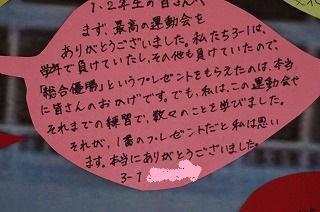 1、2年生の皆さんへ
まず、最高の運動会を
ありがとうございました。私たち3-1は、
学年で負けていたし、その他も負けていたので、
「総合優勝」というプレゼントをもらえたのは、本当
に皆さんのおかげです。でも、私は、この運動会や
それまでの練習で、数々のことを学びました。
それが、1番のプレゼントだと私は思い
ます。本当にありがとうございました。
3-1